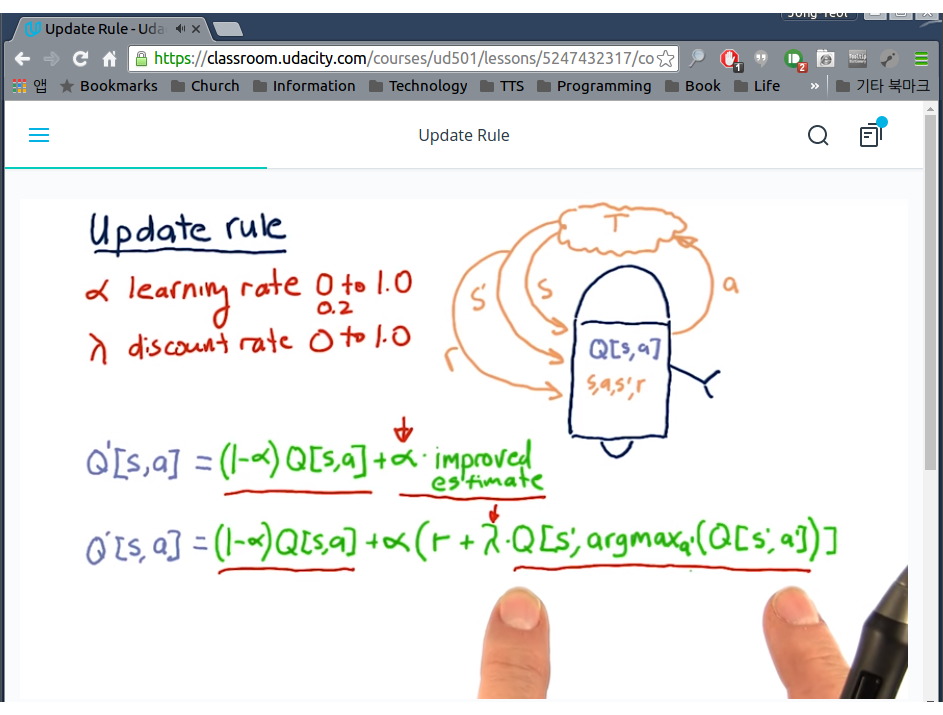 Jong Yeol
Update Rule - Uda
https://classroom.udacity.com/courses/ud501/lessons/5247432317/co
1
2
앱 Bookmarks Church Information Technology TTS Programming Book Life » 기타 북마크
Update Rule
Update rule
α learning rate 0 to 1.0
0.2
λ discount rate 0 to 1.0
T
s'
s
a
r
Q[s,a]
s,a,s',r
Q'[s,a] = (1-α) Q[s,a] + α · improved
estimate
Q'[s,a] = (1-α)Q[s,a] + α(r + λ·Q[s', argmaxa'(Q[s',a'])]